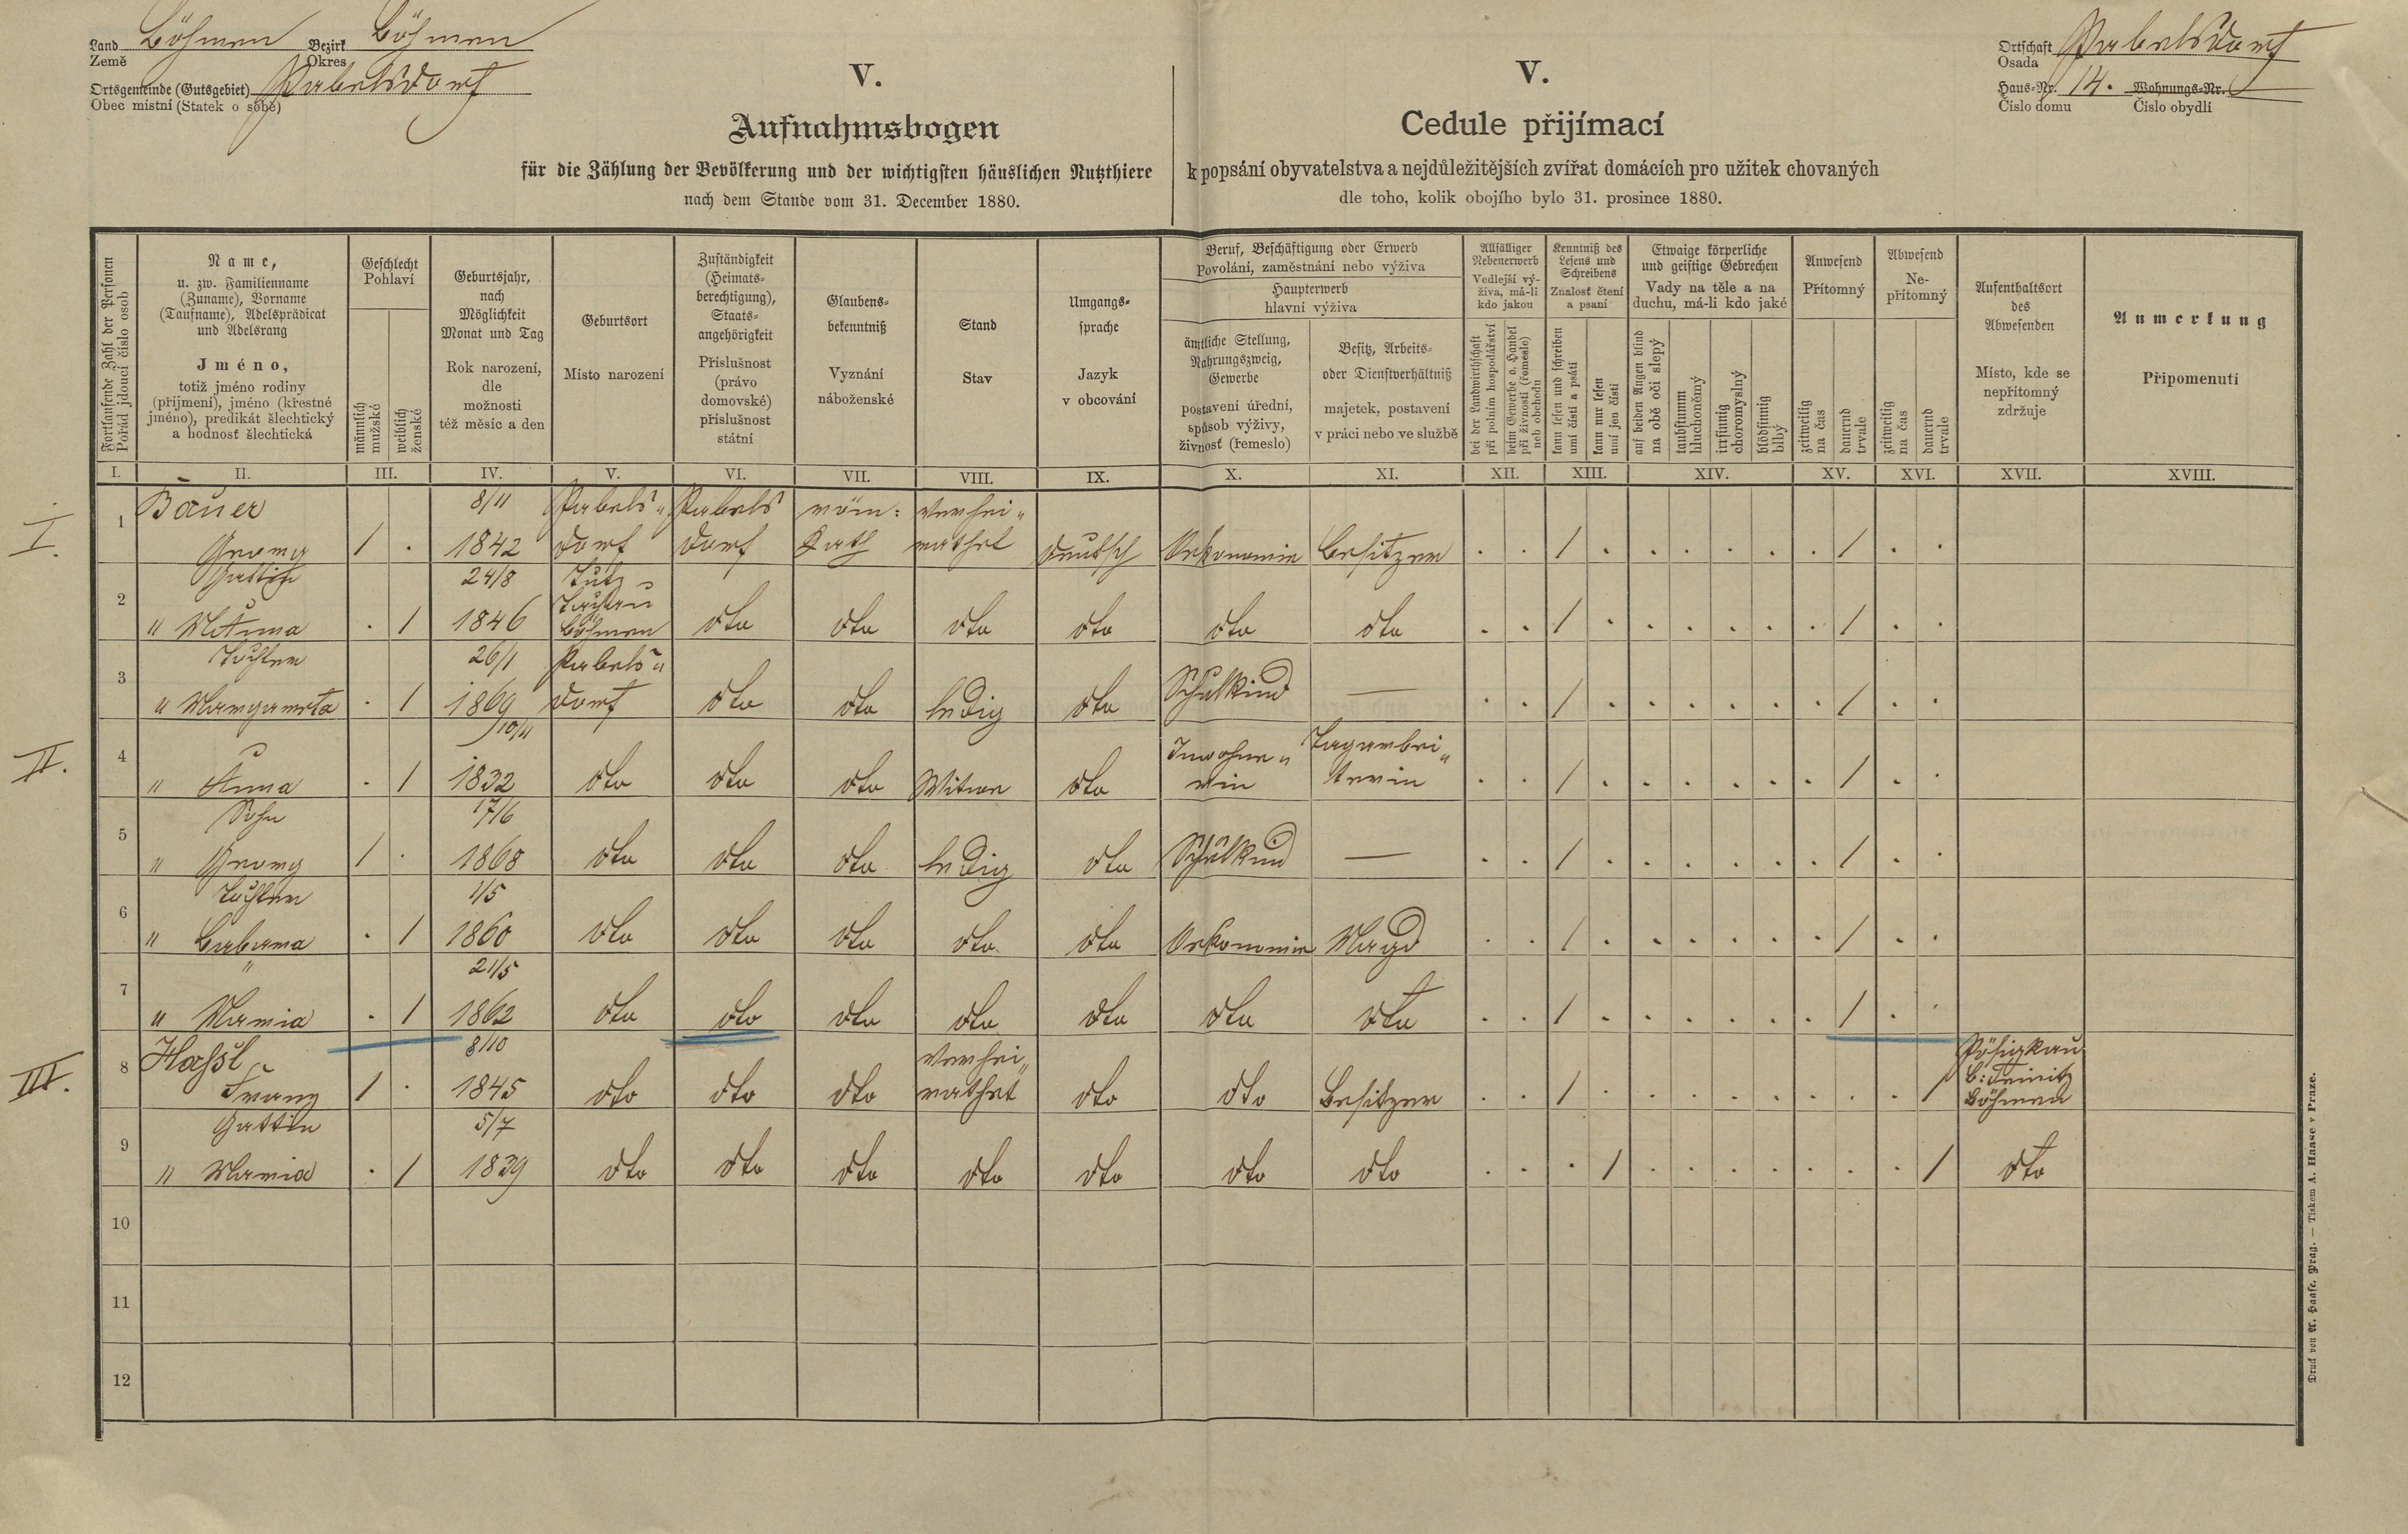 Land Böhmen Bezirk Böhmen
Země Okres
Ortsgemeinde (Gutsgebiet) Pabelsdorf
Obec místní (Statek o sobě)
V.
Aufnahmsbogen
für die Zählung der Bevölkerung und der wichtigsten häuslichen Nutzthiere
nach dem Stande vom 31. December 1880.
V.
Cedule přijímací
k popsání obyvatelstva a nejdůležitějších zvířat domácích pro užitek chovaných
dle toho, kolik obojího bylo 31. prosince 1880.
Ortschaft Pabelsdorf
Osada
Haus-Nr. 14. Wohnungs-Nr.
Číslo domu Číslo obydlí
Fortlaufende Zahl der Personen
Pořád jdoucí číslo osob
Name,
u. zw. Familienname
(Zuname), Vorname
(Taufname), Adelsprädicat
und Adelsrang
Jméno,
totiž jméno rodiny
(příjmení), jméno (křestné
jméno), predikát šlechtický
a hodnosť šlechtická
Geschlecht
Pohlaví
männlich
mužské
weiblich
ženské
Geburtsjahr,
nach
Möglichkeit
Monat und Tag
Rok narození,
dle
možnosti
též měsíc a den
Geburtsort
Místo narození
Zuständigkeit
(Heimats-
berechtigung),
Staats-
angehörigkeit
Příslušnost
(právo
domovské)
příslušnost
státní
Glaubens-
bekenntniß
Vyznání
náboženské
Stand
Stav
Umgangs-
sprache
Jazyk
v obcování
Beruf, Beschäftigung oder Erwerb
Povolání, zaměstnání nebo výživa
Haupterwerb
hlavní výživa
ämtliche Stellung,
Nahrungszweig,
Gewerbe
postavení úřední,
spůsob výživy,
živnosť (řemeslo)
Besitz, Arbeits-
oder Dienstverhältniß
majetek, postavení
v práci nebo ve službě
Allfälliger
Nebenerwerb
Vedlejší vý-
živa, má-li
kdo jakou
bei der Landwirthschaft
při polním hospodářství
beim Gewerbe o. Handel
při živnosti (řemeslo)
neb obchodu
Kenntniß des
Lesens und
Schreibens
Znalosť čtení
a psaní
kann lesen und schreiben
umí čísti a psáti
kann nur lesen
umí jen čísti
Etwaige körperliche
und geistige Gebrechen
Vady na těle a na
duchu, má-li kdo jaké
auf beiden Augen blind
na obě oči slepý
taubstumm
hluchoněmý
irrsinnig
choromyslný
blödsinnig
blbý
Anwesend
Přítomný
zeitweilig
na čas
dauernd
trvale
Abwesend
Ne-
přítomný
zeitweilig
na čas
dauernd
trvale
Aufenthaltsort
des
Abwesenden
Místo, kde se
nepřítomný
zdržuje
Anmerkung
Připomenutí
I. II. III. IV. V. VI. VII. VIII. IX. X. XI. XII. XIII. XIV. XV. XVI. XVII. XVIII.
I. 1 Bauer 8/11 Pabels" Pabels röm: verhei"
Georg / . 1842 dorf dorf Kath rathet deutsch Oekonomie Besitzer . . / . . . . . . / . .
2 Gattin 24/8
Tachau
" Anna . / 1846 Böhmen dto dto dto dto dto dto . . / . . . . . . / . .
3 Tochter 26/1 Pabels"
" Margareta . / 1869 dorf dto dto ledig dto Schulkind — . . / . . . . . . / . .
II. 4 10/11 Inwohne" Tagarbei"
" Anna . / 1832 dto dto dto Witwe dto rin terin . . / . . . . . . / . .
5 Sohn 17/6
" Georg / . 1868 dto dto dto ledig dto Schulkind — . . / . . . . . . / . .
6 Tochter 1/5
" Barbara . / 1860 dto dto dto dto dto Oekonomie Magd . . / . . . . . . / . .
7 " 21/5
" Maria . / 1862 dto dto dto dto dto dto dto . . / . . . . . . / . .
III. 8 Haßl 8/10 Verhei"
Franz / . 1845 dto dto dto rathet dto dto Besitzer . . / . . . . . . . . / Pösigkau
B: Teinitz
Böhmen
9 Gattin 5/7
" Maria . / 1839 dto dto dto dto dto dto dto . . . / . . . . . . . / dto
10
11
12
Druck von A. Haase, Prag. — Tiskem A. Haase v Praze.